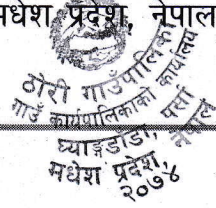 मधेश प्रदेश, नेपाल
ठोरी गाउँपालिका
गाउँ कार्यपालिकाको कार्यालय
घ्याङ्गडाँडा, पर्सा
मधेश प्रदेश, नेपाल
२०७४